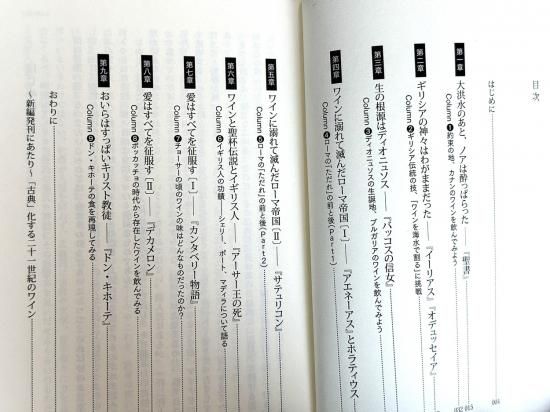 目次
はじめに
001
第一章 大洪水のあと、ノアは酔っぱらった――『聖書』
015
Column ❶約束の地、カナンのワインを飲んでみよう
032
第二章 ギリシアの神々はわがままだった――『イーリアス』『オデュッセイア』
Column ❷ギリシア伝統の技、「ワインを海水で割る」に挑戦
第三章 生の根源はディオニュソス――『バッコスの信女』
Column ❸ディオニュソスの生誕地、ブルガリアのワインを飲んでみよう
第四章 ワインに溺れて滅んだローマ帝国〔Ⅰ〕――『アエネーアス』とホラティウス
Column ❹ローマの「ただれ」の前と後(Part1)
第五章 ワインに溺れて滅んだローマ帝国〔Ⅱ〕――『サテュリコン』
Column ❺ローマの「ただれ」の前と後(Part2)
第六章 ワインと聖杯伝説とイギリス人――『アーサー王の死』
Column ❻イギリス人の功績――シェリー、ポート、マディラについて語る
第七章 愛はすべてを征服す〔Ⅰ〕――『カンタベリー物語』
Column ❼チョーサーの頃のワインの味はどんなものだったのか?
第八章 愛はすべてを征服す〔Ⅱ〕――『デカメロン』
Column ❽ボッカッチョの時代から存在したワインを飲んでみる
第九章 おいらはすっぱいキリスト教徒――『ドン・キホーテ』
Column ❾ドン・キホーテの食を再現してみる
おわりに
〜新編発刊にあたり〜 「古典」化する二十一世紀のワイン